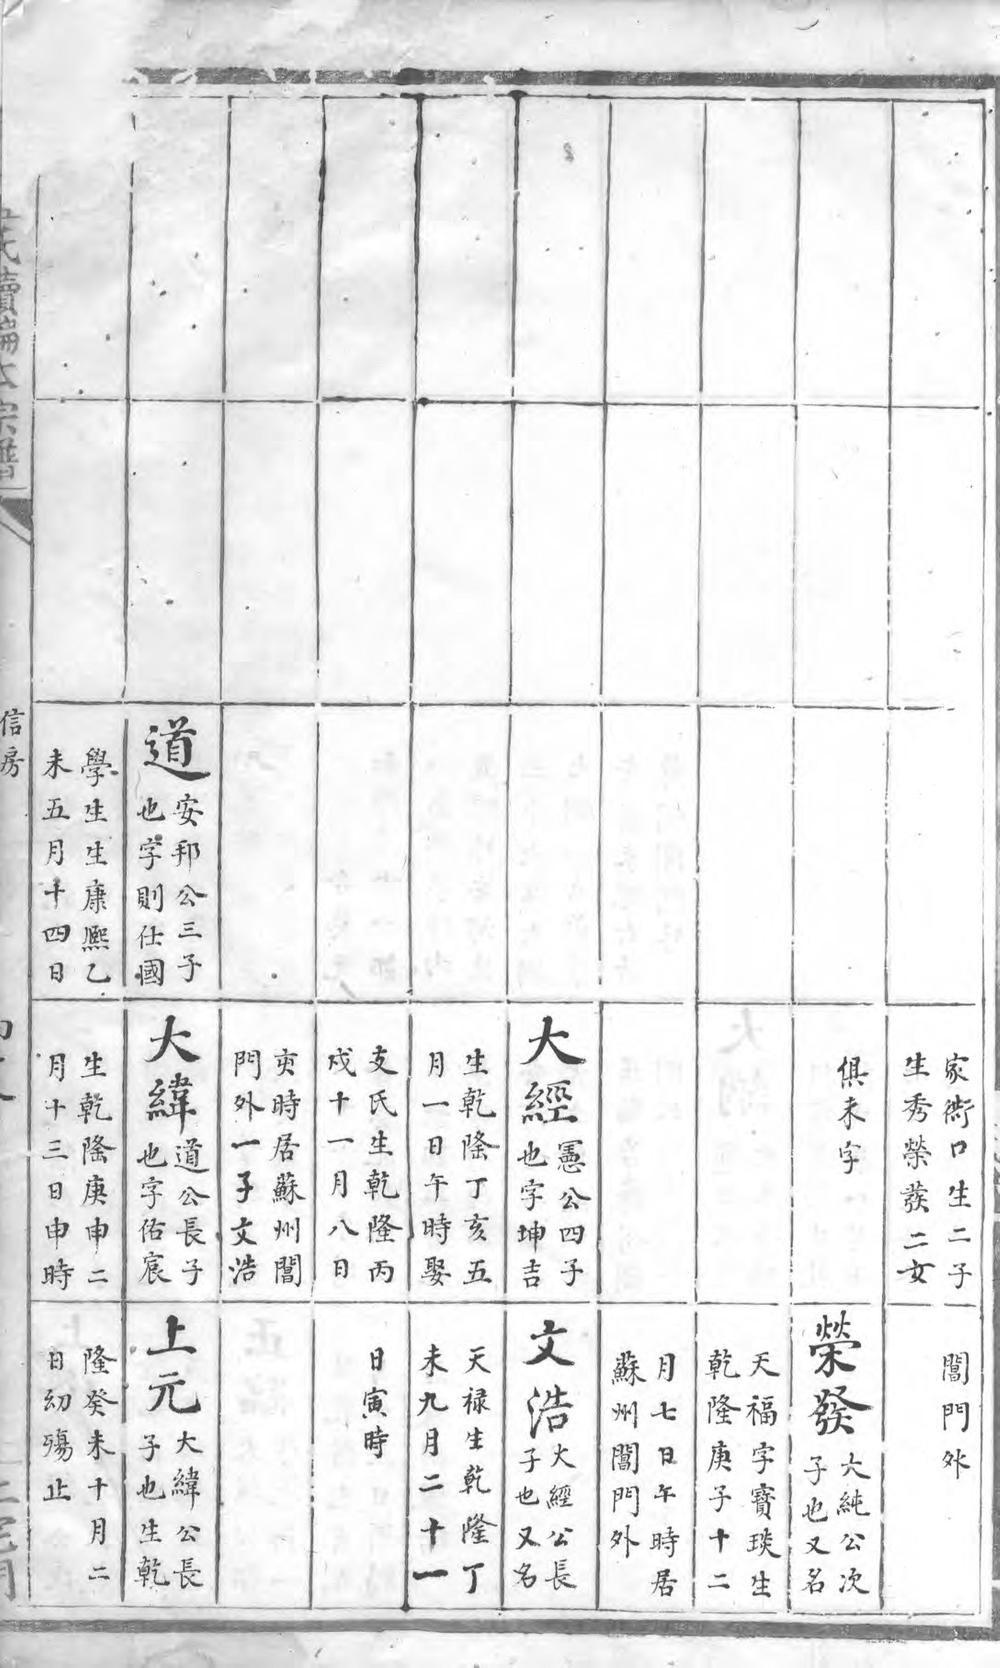 道
安邦公三子
也字則仕國
學生生康熙乙
未五月十四日
家衖口生二子
生秀榮發二女
俱未字
大經
憲公四子
也字坤吉
生乾隆丁亥五
月一日午時娶
支氏生乾隆丙
戌十一月八日
寅時居蘇州閶
門外一子文浩
大緯
道公長子
也字佑宸
生乾隆庚申二
月十三日申時
閶門外
榮發
大純公次
子也又名
天福字寶琰生
乾隆庚子十二
月七日午時居
蘇州閶門外
文浩
大經公長
子也又名
天禄生乾隆丁
未九月二十一
日寅時
上元
大緯公長
子也生乾
隆癸未十月二
日幼殤止
氏續編大宗譜
信房